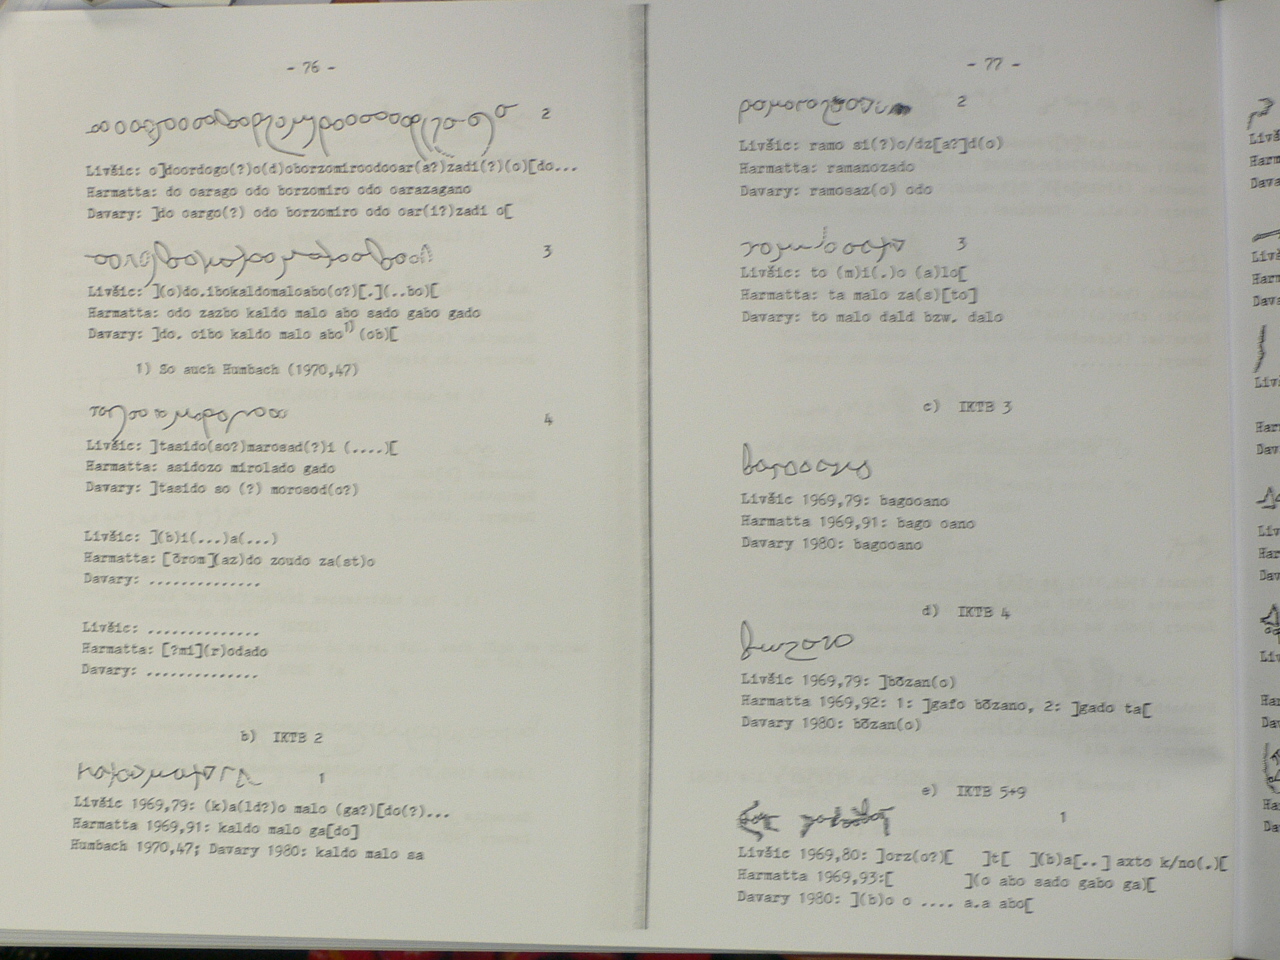 - 76 -
2
Livšic: o]doordogo(?)o(d)oborzomiroodooar(a?)zadi(?)(o)[do...
Harmatta: do oarago odo borzomiro odo oarazagano
Davary: ]do oargo(?) odo borzomiro odo oar(i?)zadi o[
3
Livšic: ](o)do.ibokaldomaloabo(o?)[.](..bo)[
Harmatta: odo zazbo kaldo malo abo sado gabo gado
Davary: ]do. oibo kaldo malo abo1) (ob)[
1) So auch Humbach (1970,47)
4
Livšic: ]tasido(so?)marosad(?)i (....)[
Harmatta: asidozo mirolado gado
Davary: ]tasido so (?) morosod(o?)
Livšic: ](b)i(...)a(...)
Harmatta: [õrom](az)do zoudo za(st)o
Davary: .............
Livšic: .............
Harmatta: [?mi](r)odado
Davary: .............
b) IKTB 2
1
Livšic 1969,79: (k)a(ld?)o malo (ga?)[do(?)...
Harmatta 1969,91: kaldo malo ga[do]
Humbach 1970,47; Davary 1980: kaldo malo sa
- 77 -
2
Livšic: ramo si(?)o/dz[a?]d(o)
Harmatta: ramanozado
Davary: ramosaz(o) odo
3
Livšic: to (m)i(.)o (a)lo[
Harmatta: ta malo za(s)[to]
Davary: to malo dald bzw. dalo
c) IKTB 3
Livšic 1969,79: bagooano
Harmatta 1969,91: bago oano
Davary 1980: bagooano
d) IKTB 4
Livšic 1969,79: ]bõzan(o)
Harmatta 1969,92: 1: ]gafo bõzano, 2: ]gado ta[
Davary 1980: bõzan(o)
e) IKTB 5+9
1
Livšic 1969,80: ]orz(o?)[ ]t[ ](b)a[..] axto k/no(.)[
Harmatta 1969,93:[ ](o abo sado gabo ga)[
Davary 1980: ](b)o o .... a.a abo[